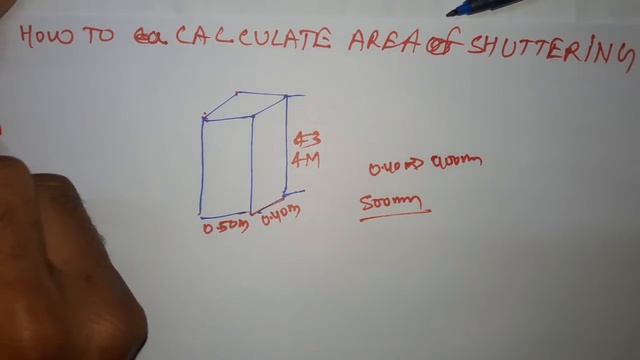 HOW TO CALCULATE AREA of SHUTTERING
4M
0.40m
0.50m 0.40m
500mm